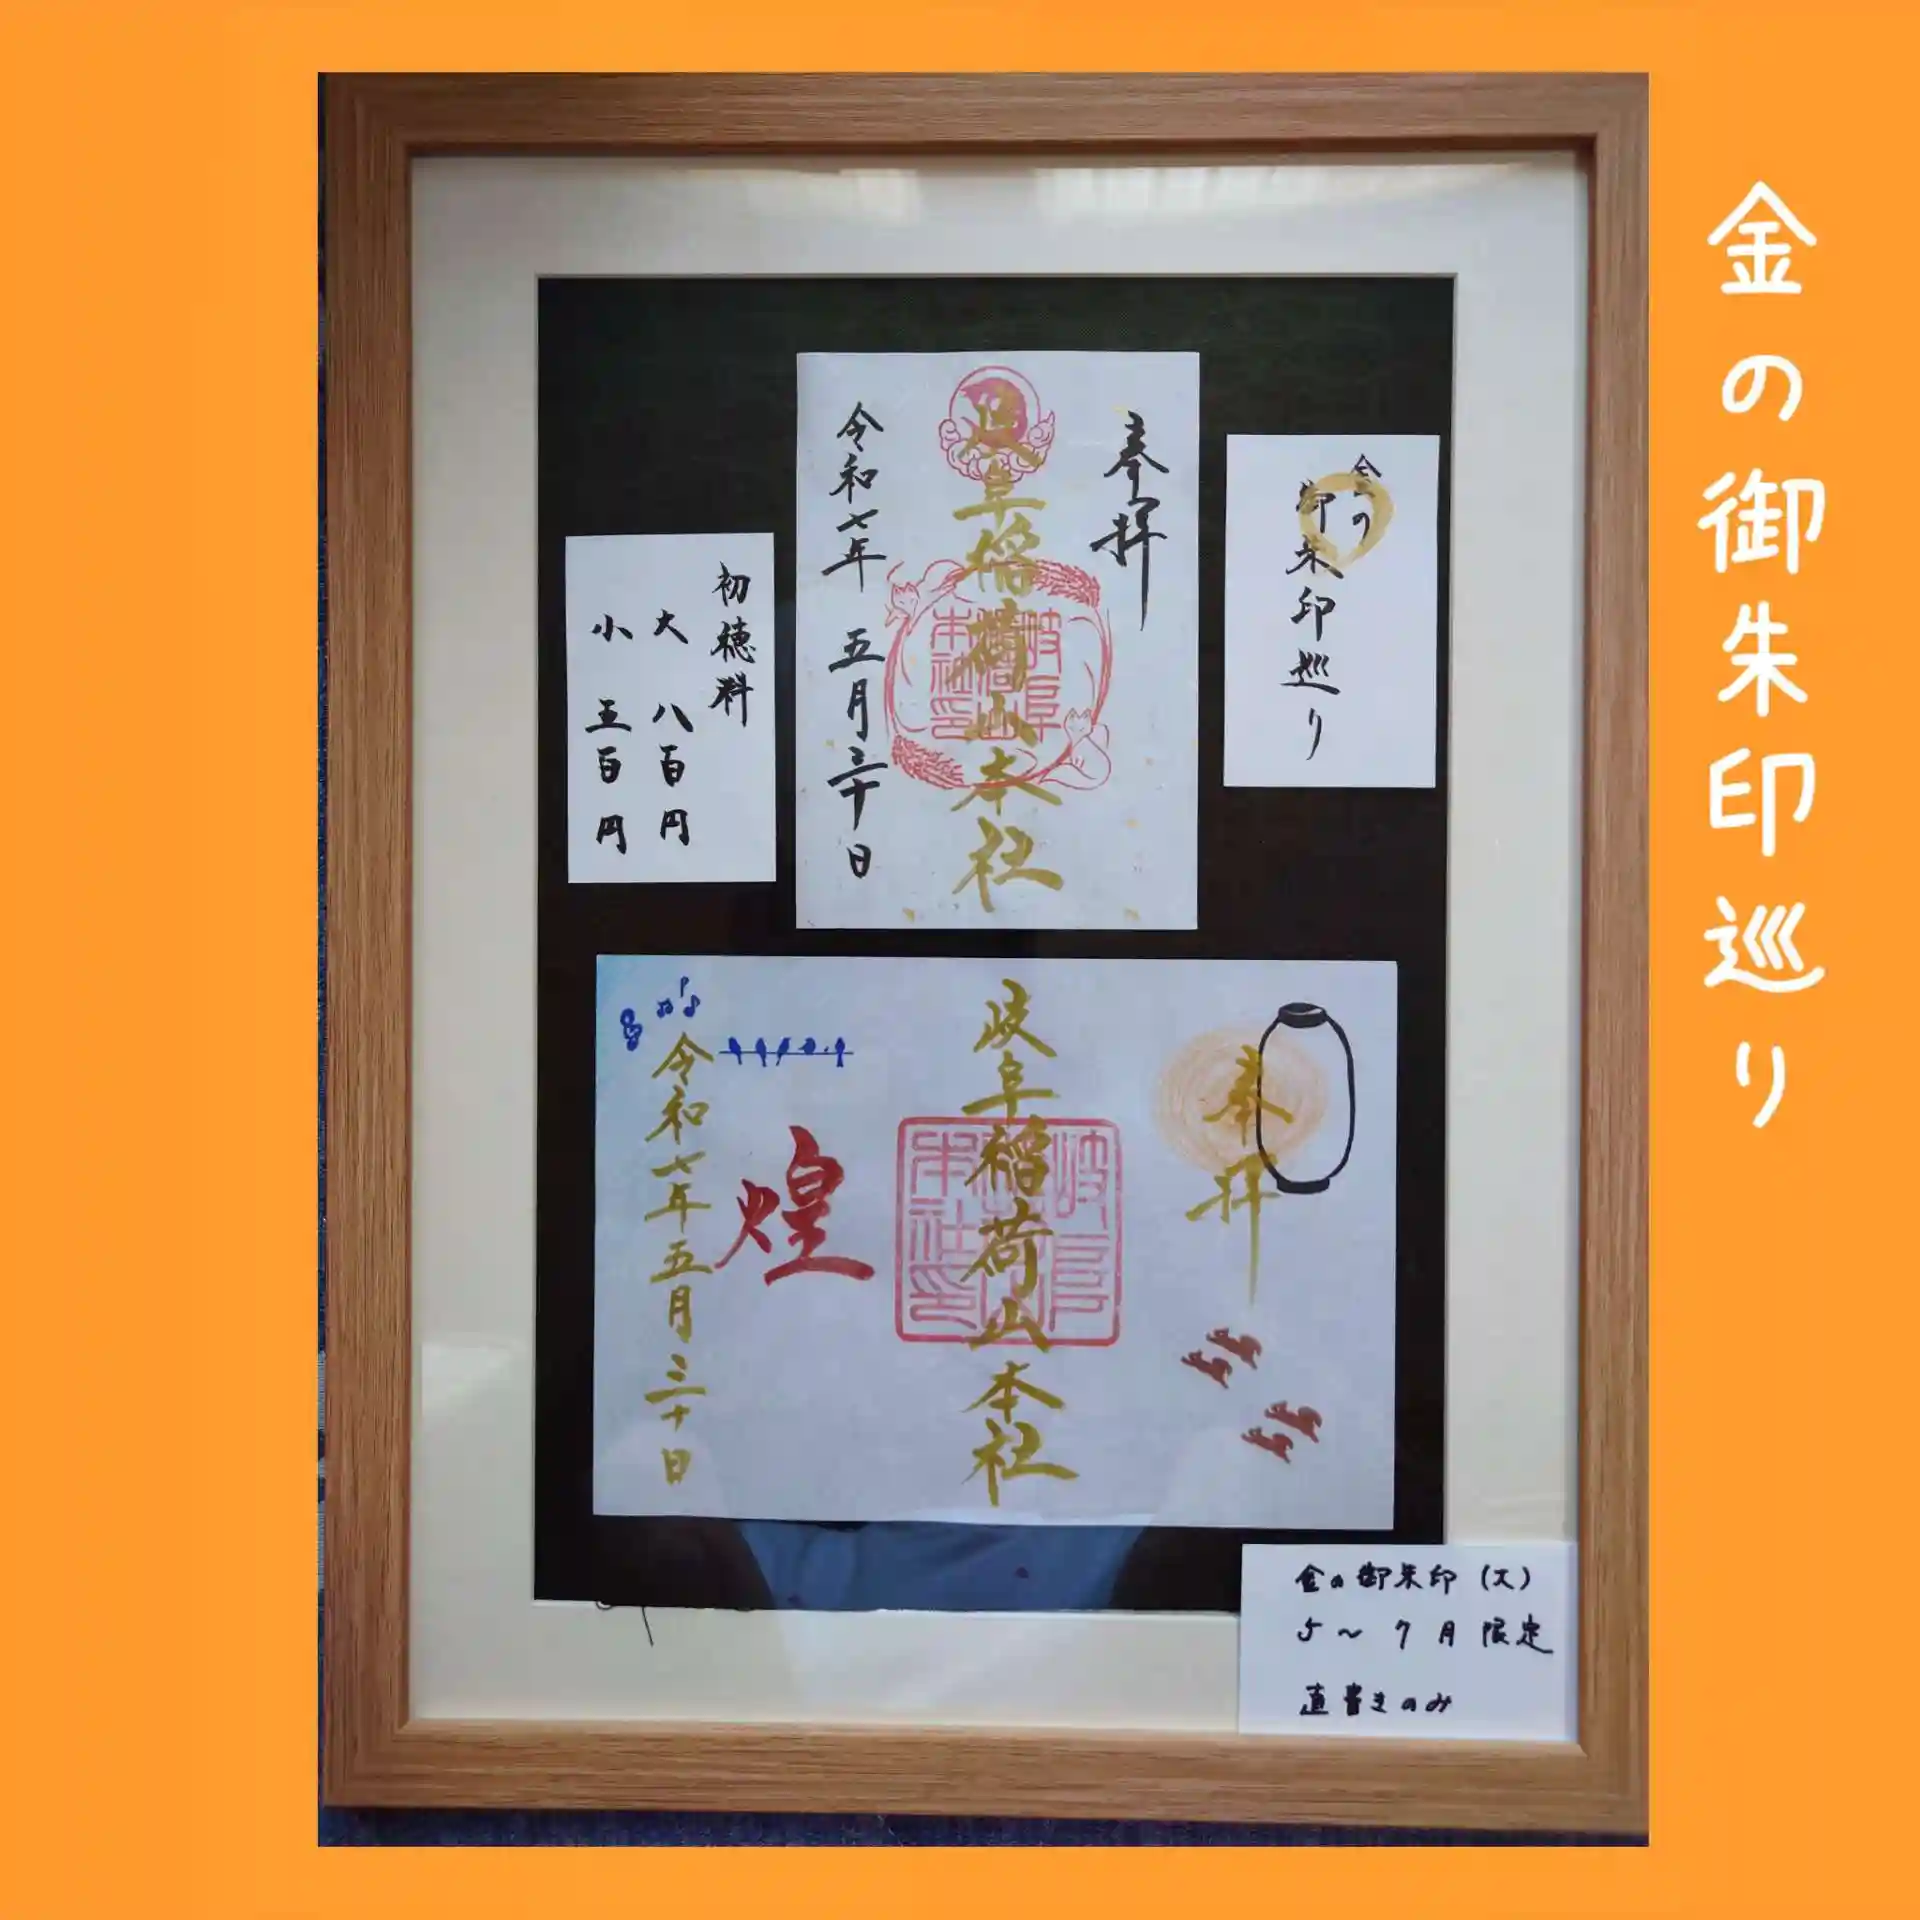 金の御朱印巡り
金の
御朱印巡り
奉拝
岐阜稲荷山本社
岐阜稲荷山本社印
令和七年 五月三十日
初穂料
大 八百円
小 五百円
奉拝
岐阜稲荷山本社
岐阜稲荷山本社印
煌
令和七年五月三十日
金の御朱印(大)
5～7月限定
直書きのみ